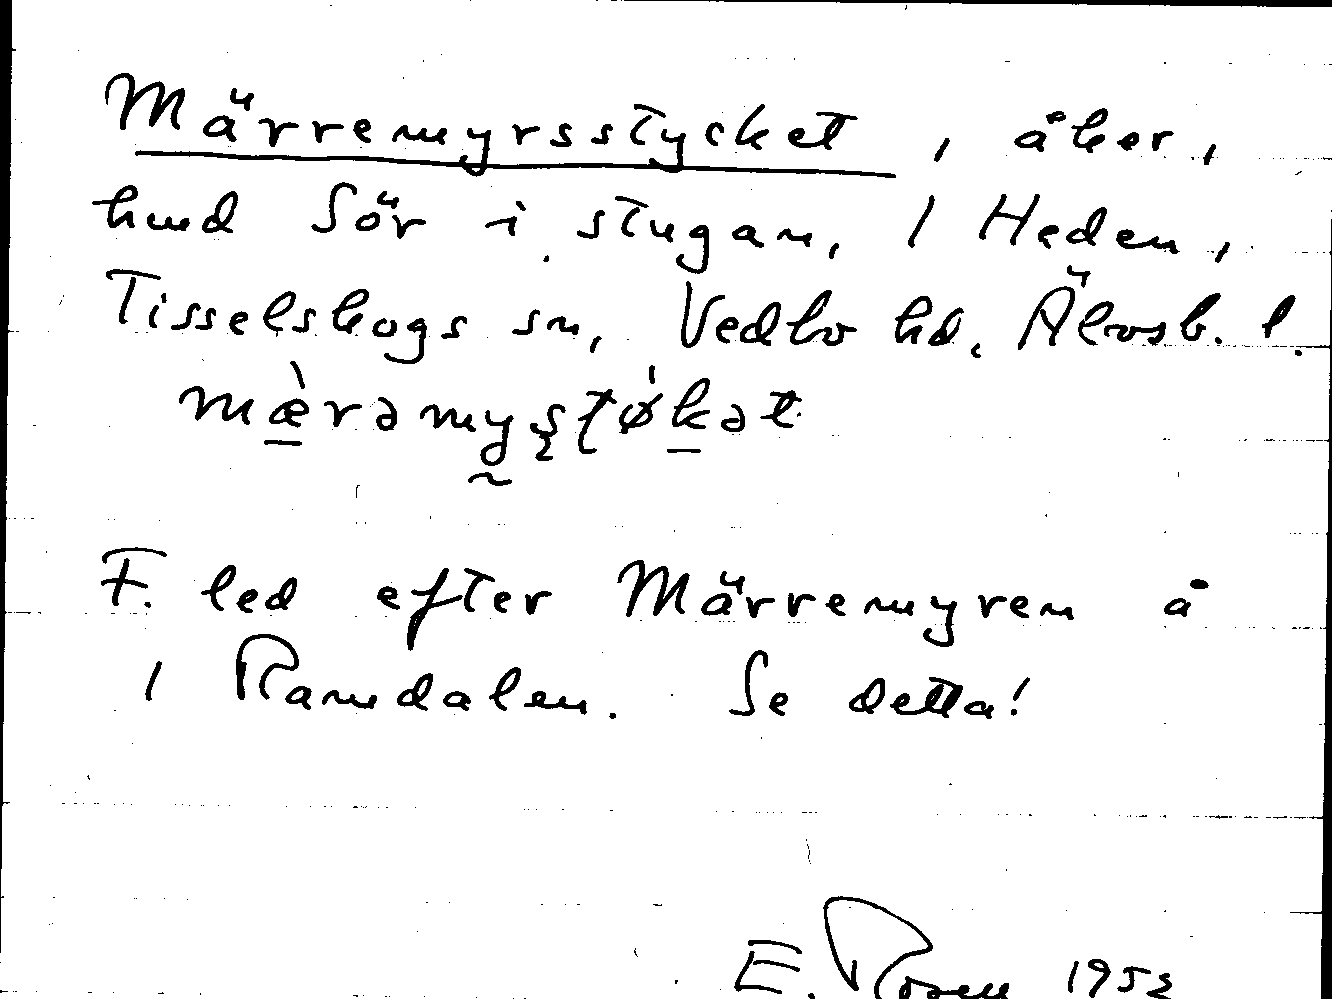 Märremyrsstycket, åker,
hmd Sör i stugan, 1 Heden,
Tisselskogs sn, Vedbo hd. Älvsb. l.
mæ̀rəmyʂʈø̍kət
F. led efter Märremyren å
1 Ramdalen. Se detta!
E. Rosen 1953